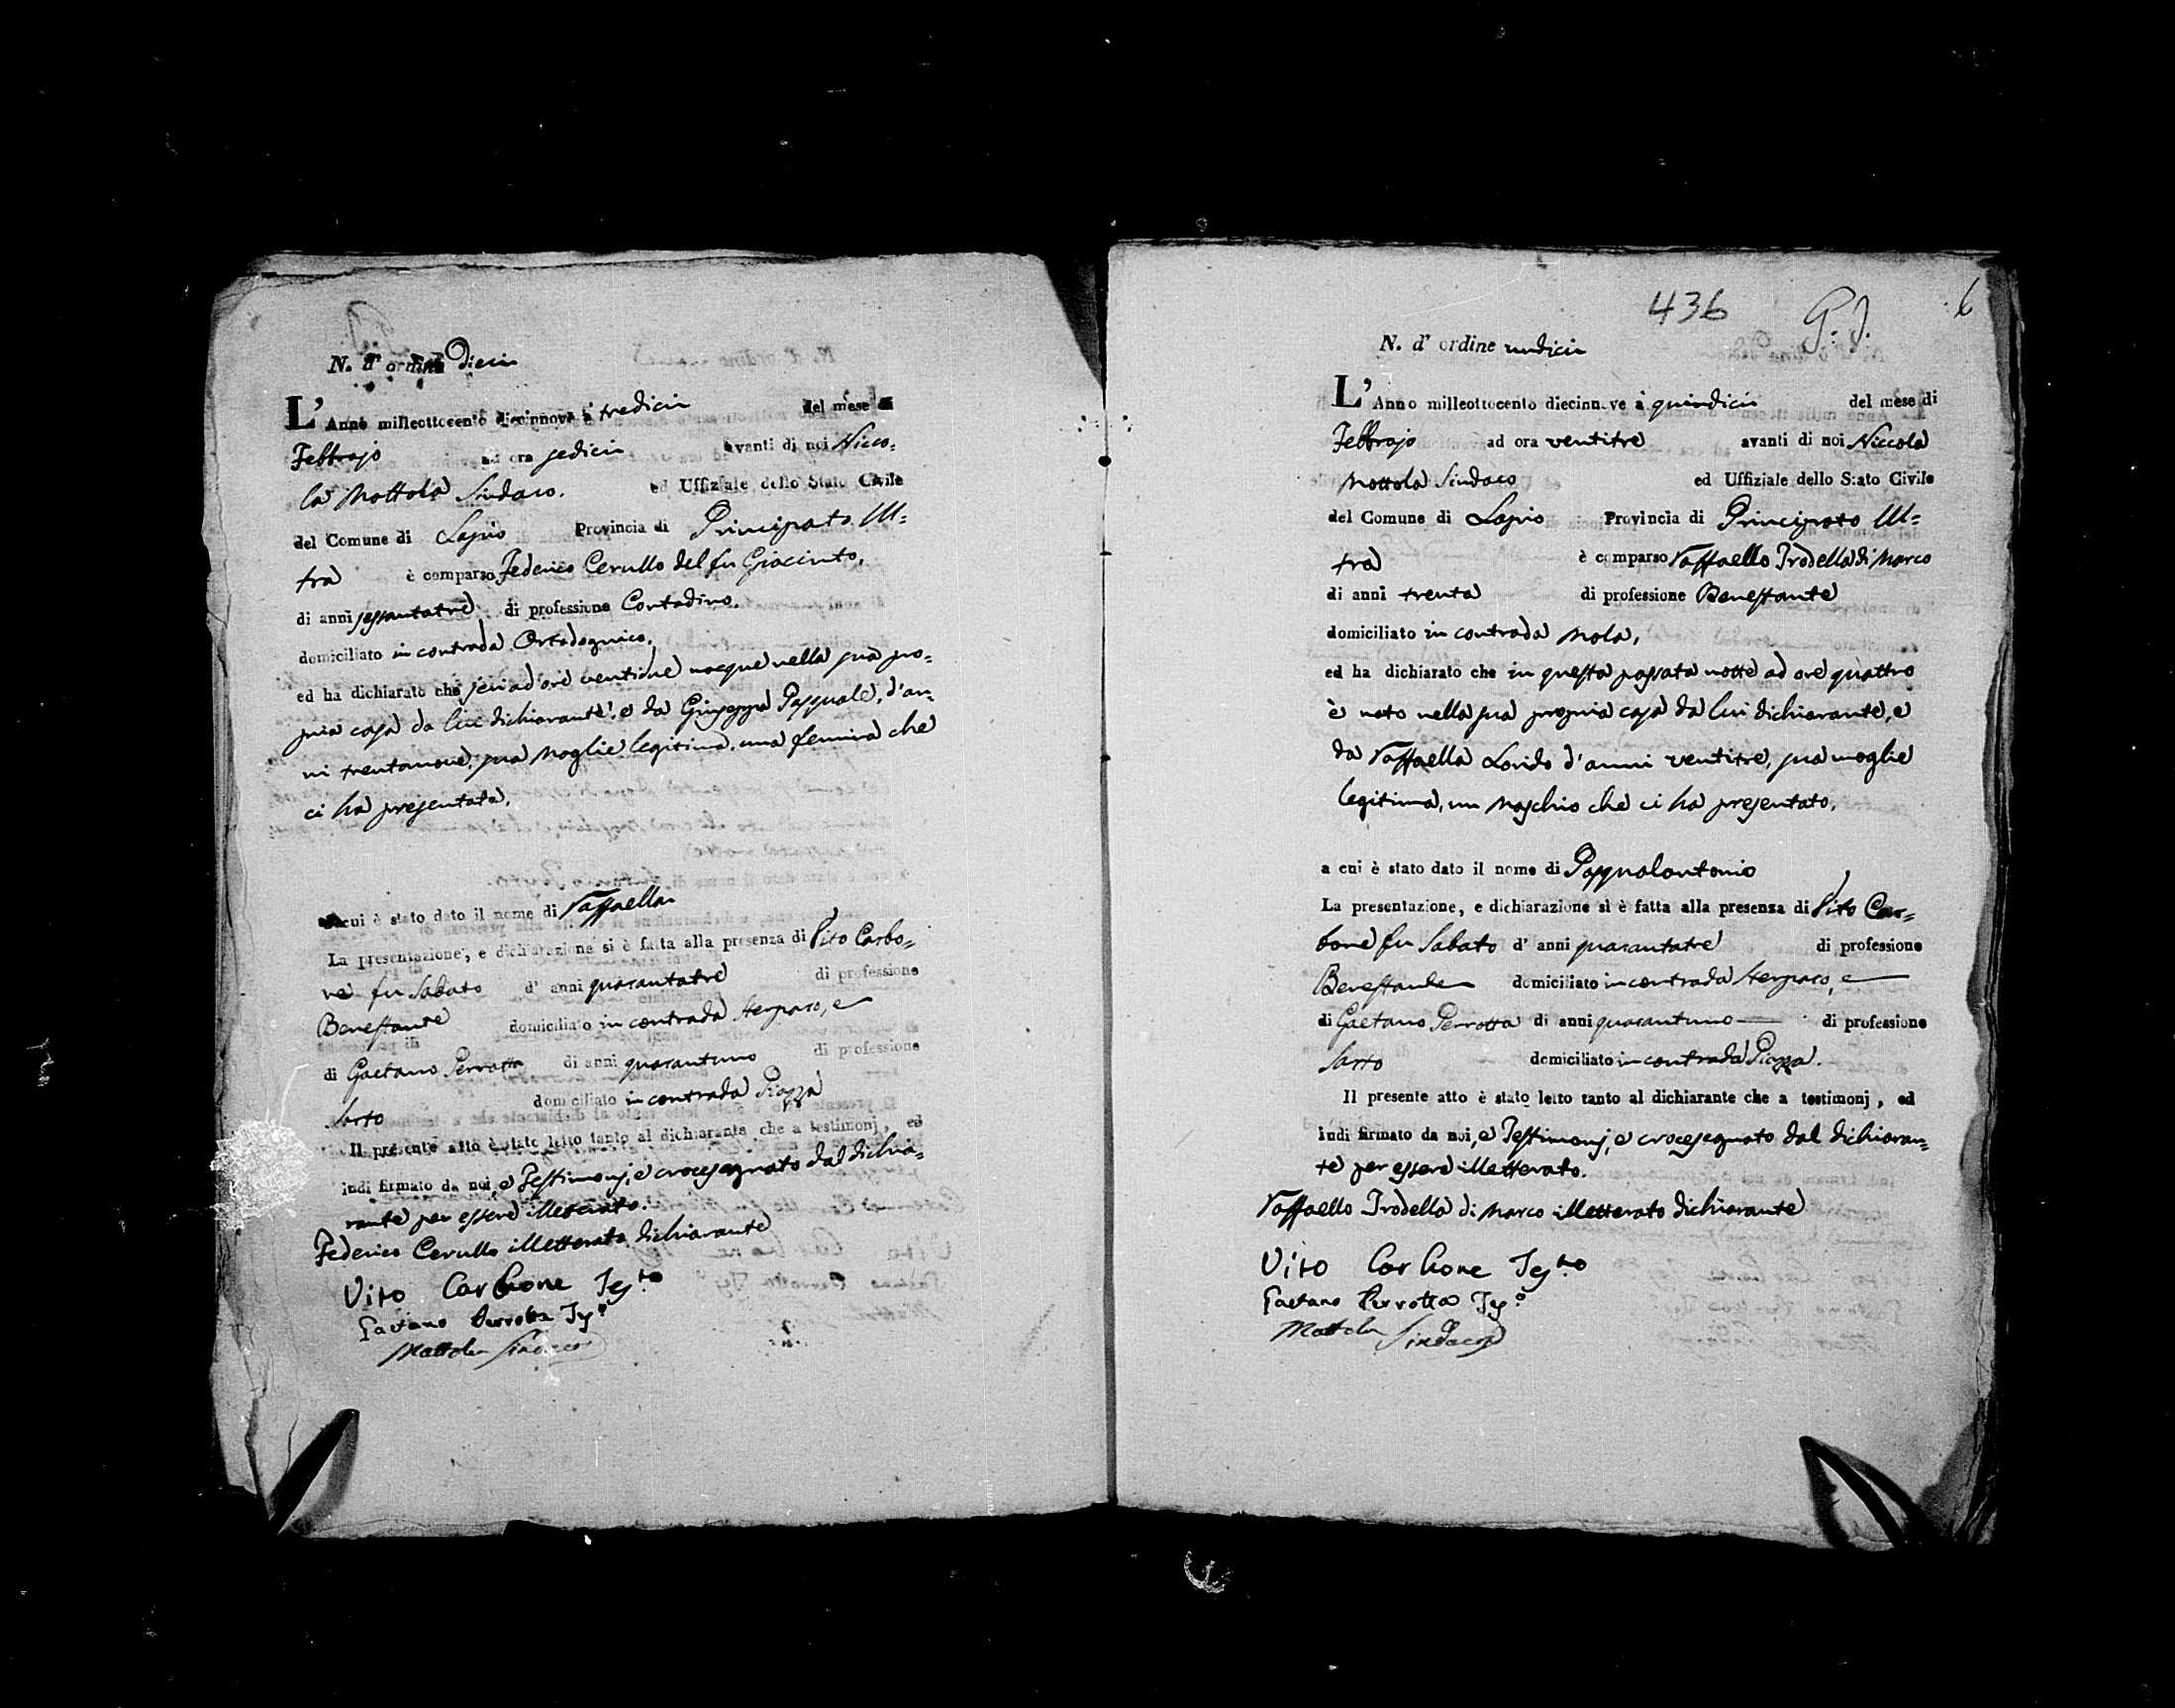 N. d' ordine Dieci
L' Anno milleottocento diecinnove à tredici del mese di
Febbrajo ad ora sedici avanti di noi Nicco=
la Mottola Sindaco. ed Uffiziale dello Stato Civile
del Comune di Lapio Provincia di Principato Ul=
tra è comparso Federico Cerullo del fu Giacinto,
di anni sessantatre di professione Contadino.
domiciliato in contrada Ortodognico,
ed ha dichiarato che jeri ad ore ventidue nacque nella sua pro=
pria casa da lui dichiarante, e da Giuseppa Pasquale, d'an=
ni trentanove, sua Moglie legitima, una femina che
ci ha presentata,
a cui è stato dato il nome di Raffaella
La presentazione, e dichiarazione si è fatta alla presenza di Vito Carbo=
ne fu Sabato d' anni quarantatre di professione
Benestante domiciliato in contrada, e
di Gaetano Perrotta di anni quarantuno di professione
Sarto domiciliato in contrada Piazza
Il presente atto è stato letto tanto al dichiarante che a testimonj, ed
indi firmato da noi, e Testimonj, e crocesegnato dal dichia=
rante per essere illetterato.
Federico Cerullo illetterato dichiarante
Vito Carbone Tes.to
Gaetano Perrotta Tes.o
Mottola Sindaco
436 6
N. d' ordine undici
L' Anno milleottocento diecinnove à quindici del mese di
Febbrajo ad ora ventitre avanti di noi Niccola
Mottola Sindaco ed Uffiziale dello Stato Civile
del Comune di Lapio Provincia di Principato Ul=
tra è comparso Raffaello Trodella di Marco
di anni trenta di professione Benestante
domiciliato in contrada Mola,
ed ha dichiarato che in questa passata notte ad ore quattro
è nato nella sua propria casa da lui dichiarante, e
da Raffaella Lorido d'anni ventitre, sua moglie
legitima, un Maschio che ci ha presentato,
a cui è stato dato il nome di Pasqualantonio
La presentazione, e dichiarazione si è fatta alla presenza di Vito Car=
bone fu Sabato d' anni quarantatre di professione
Benestante domiciliato in contrada, e
di Gaetano Perrotta di anni quarantuno di professione
Sarto domiciliato in contrada Piazza.
Il presente atto è stato letto tanto al dichiarante che a testimonj, ed
indi firmato da noi, e Testimonj, e crocesegnato dal dichiaran=
te per essere illetterato.
Raffaello Trodella di Marco illetterato dichiarante
Vito Carbone Tes.to
Gaetano Perrotta Tes.o
Mottola Sindaco